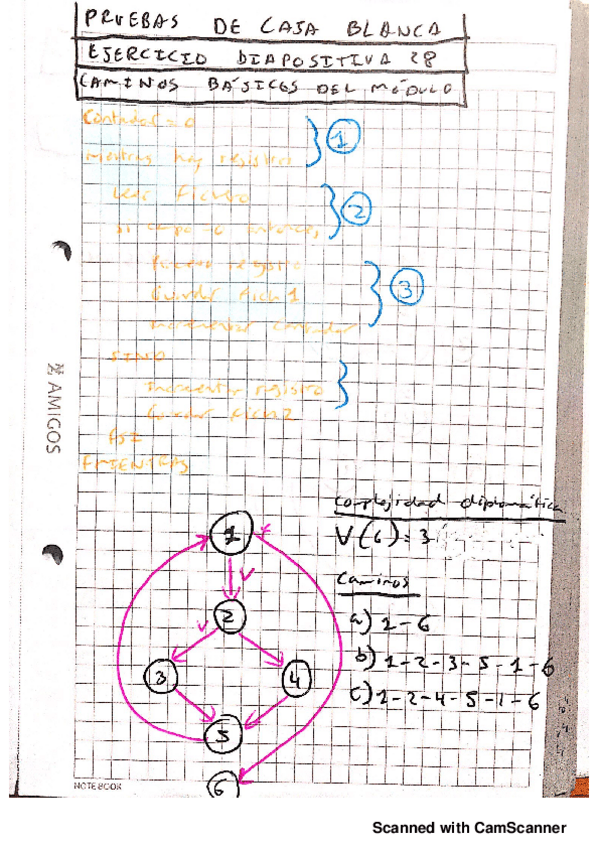 PRUEBAS DE CAJA BLANCA
EJERCICIO DIAPOSITIVA 28
CAMINOS BÁSICOS DEL MÓDULO
Contador = 0
mientras hay registros
1
leer fichero
2
si campo = 0 entonces,
registro
Guardar fich 1
3
Incrementar contador
SINO
Incrementar registro
Guardar fich 2
FSI
FMIENTRAS
AMIGOS
Complejidad diplomática
V(G) = 3
Caminos
a) 1-6
b) 1-2-3-5-1-6
c) 1-2-4-5-1-6
1
V
2
V
3
4
5
6
NOTEBOOK
Scanned with CamScanner